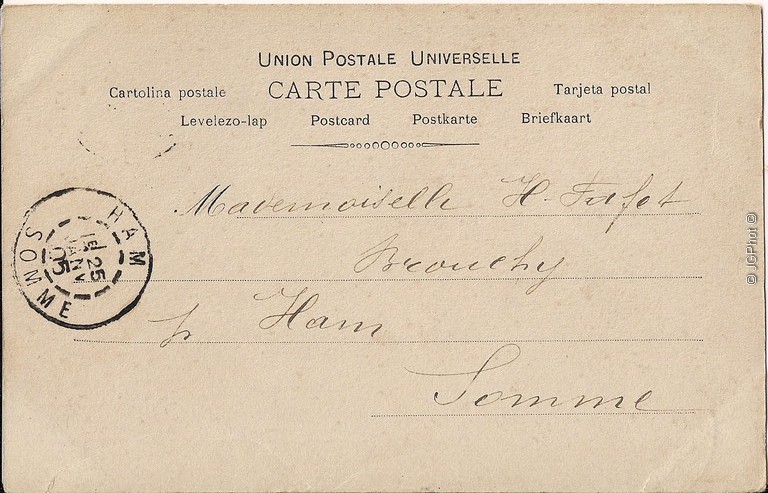 UNION POSTALE UNIVERSELLE
Cartolina postale CARTE POSTALE Tarjeta postal
Levelezo-lap Postcard Postkarte Briefkaart
Mademoiselle H.
Brouchy
pr Ham
Somme
HAM
25
JANV
05
SOMME
© JGPhot ©